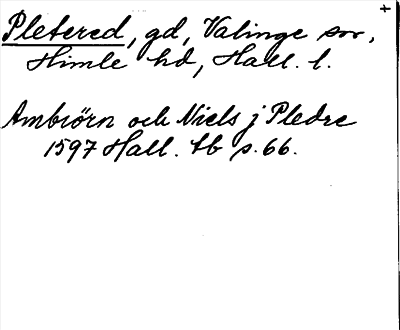 Pletered, gd, Valinge sn,
Himle hd, Hall. l.
Ambiörn och Niels j Pledre
1597 Hall. tb s. 66.